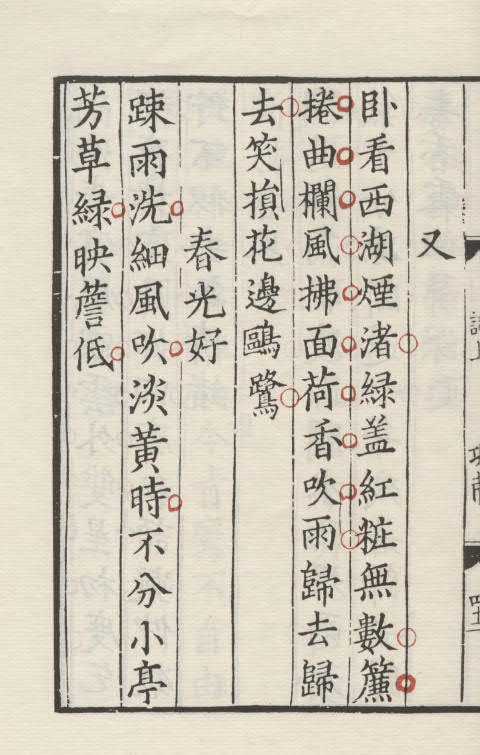 又
卧看西湖煙渚綠盖紅粧無數簾
捲曲欄風拂面荷香吹雨歸去歸
去笑損花邊鷗鷺
春光好
踈雨洗細風吹淡黃時不分小亭
芳草綠映簷低